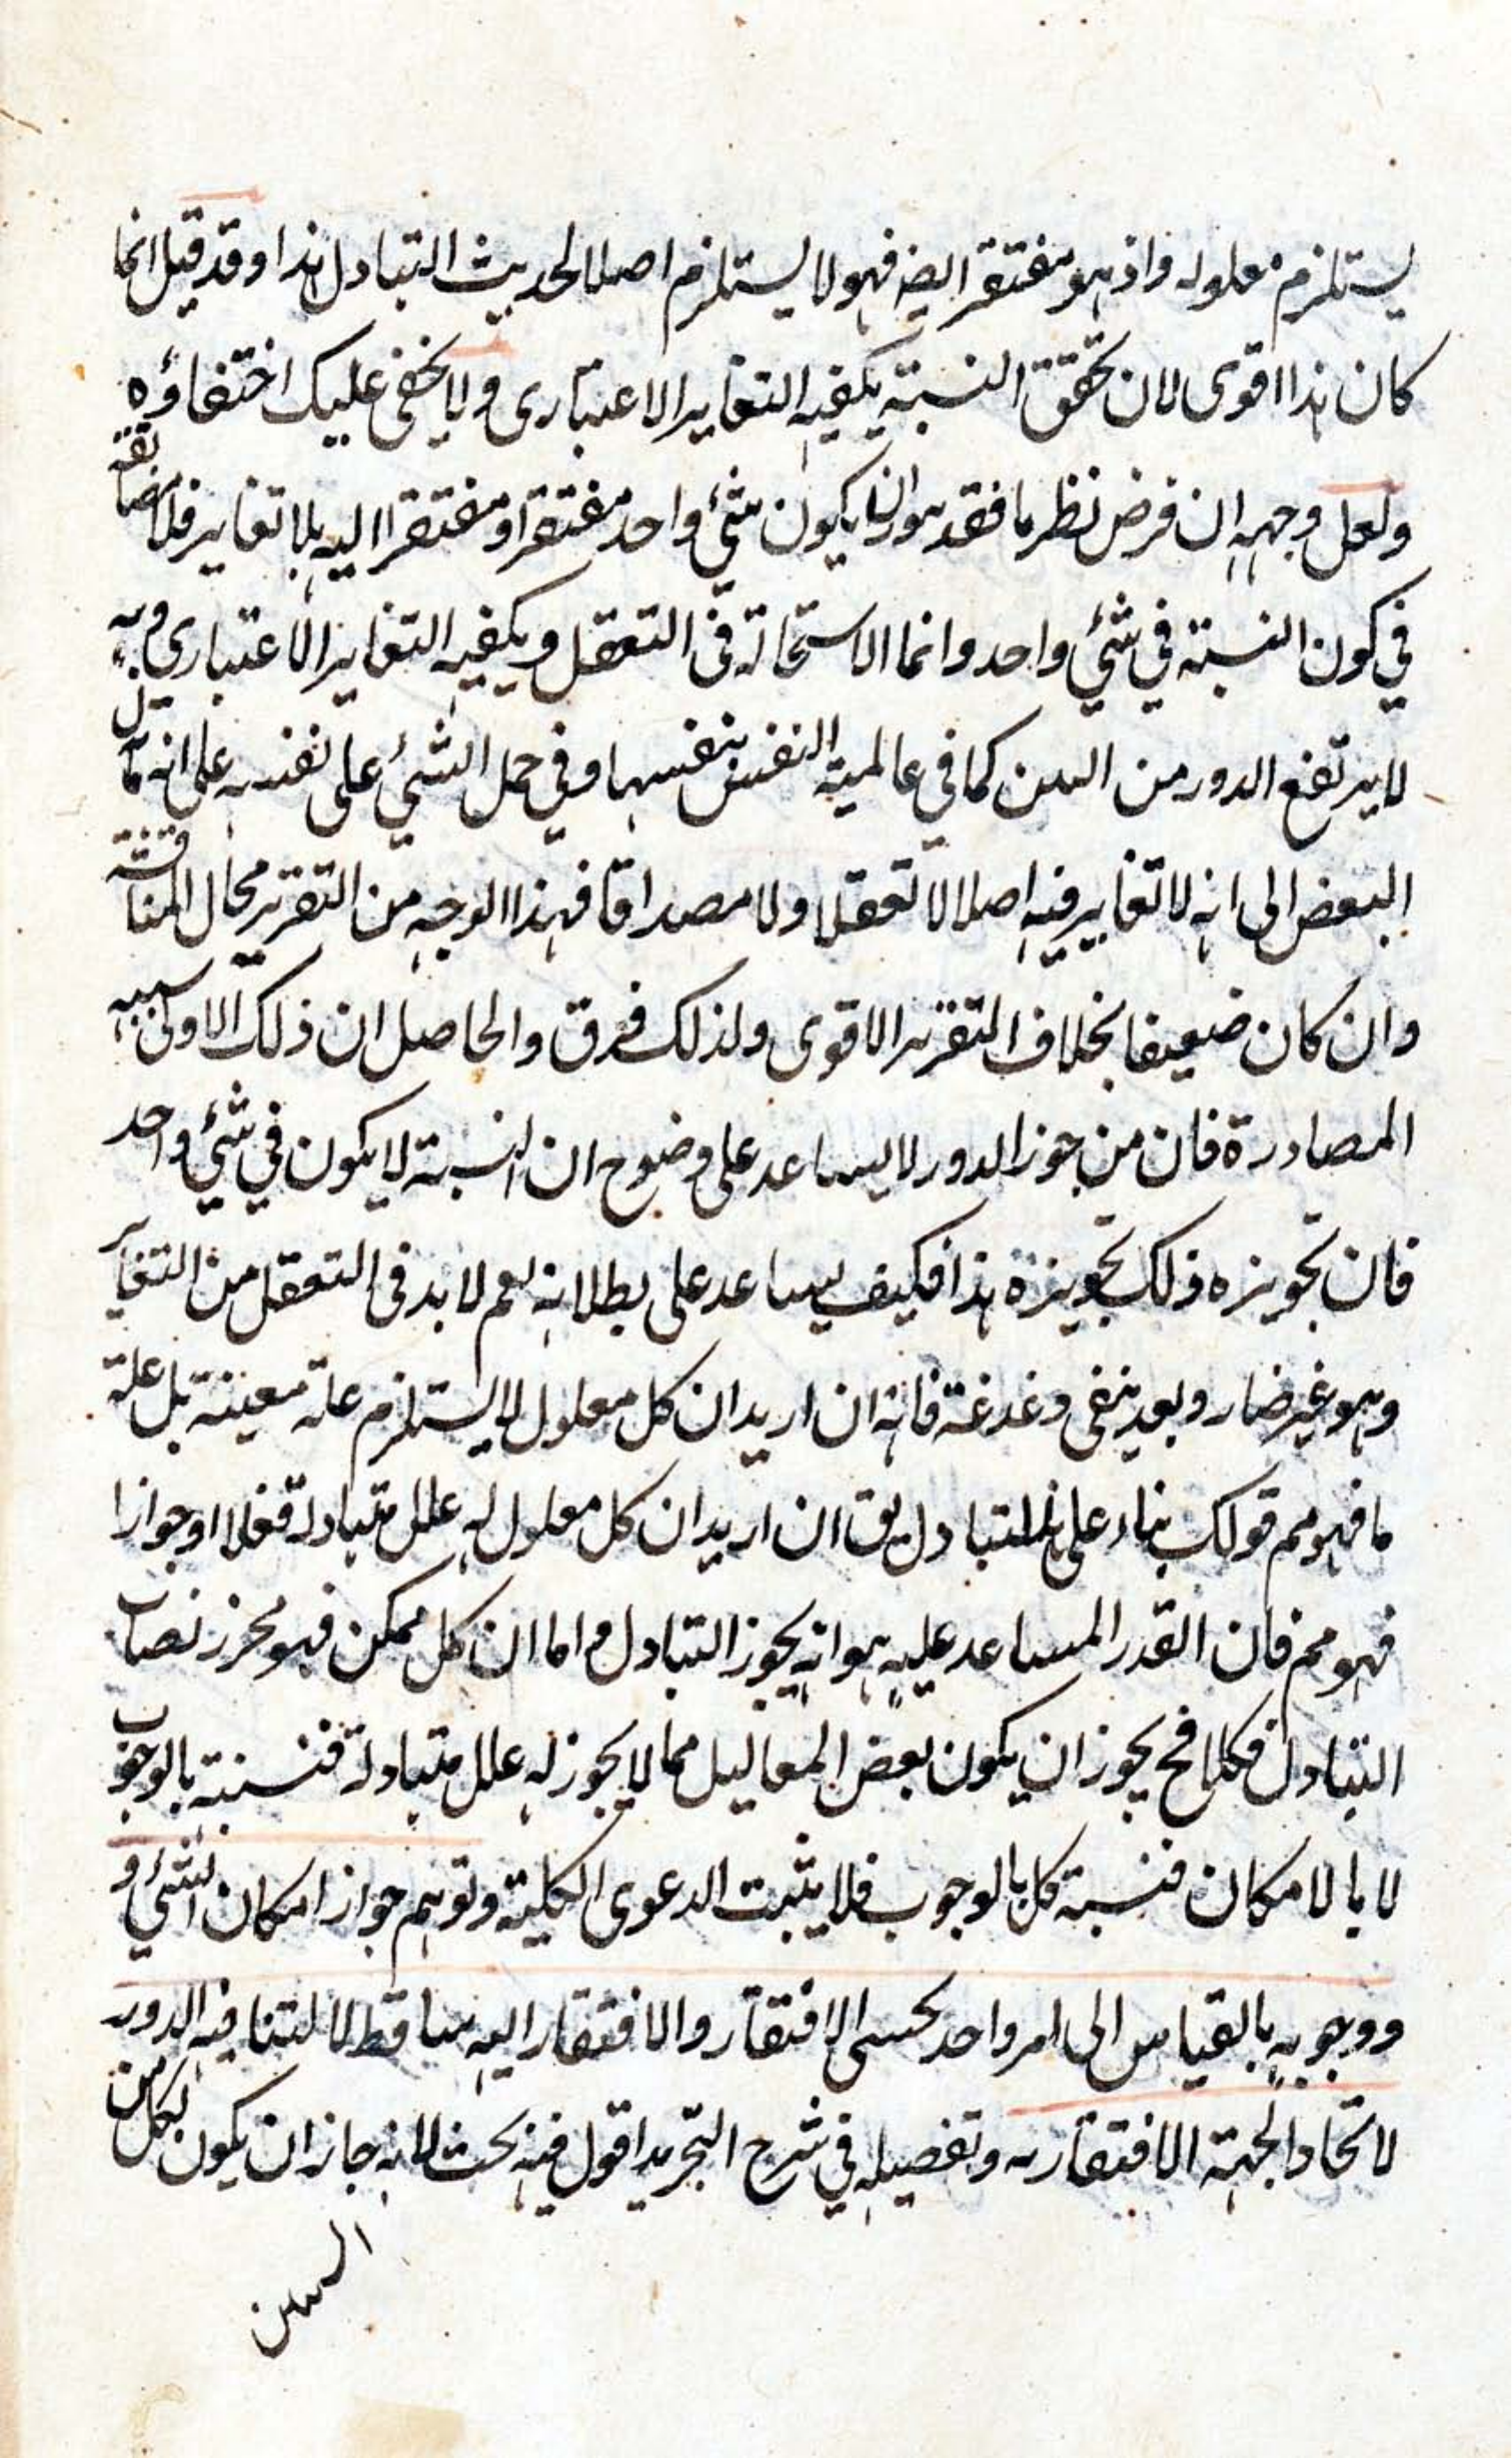 يستلزم معلوله واذ هو مفتقر ايضه فهو لا يستلزم اصلا لحديث التبادل هذا وقد قيل انما
كان هذا اقوى لان تحقق النسبة يكفيه التغاير الاعتباري ولا يخفى عليك اختفاؤه
ولعل وجهه ان فرض نظرنا فقد هو ان يكون شئ واحد مفتقرا ومفتقرا اليه بلا تغاير فلا مضايقة
في كون النسبة في شئ واحد وانما الاستحالة في التعقل ويكفيه التغاير الاعتباري وبه
لا يرتفع الدور من البين كما في عالمية النفس بنفسها وفي حمل الشئ على نفسه على انه مال
البعض الى انه لا تغاير فيه اصلا لا تعقلا ولا مصداقا فهذا الوجه من التقرير محال المناقشة
وان كان ضعيفا بخلاف التقرير الاقوى ولذلك فرق والحاصل ان ذلك الاولى
المصادرة فان من جوز الدور لا يساعد على وضوح ان النسبة لا يكون في شئ واحد
فان تجويزه ذلك تجويزه هذا فكيف يساعد على بطلانه نعم لا بد في التعقل من التغاير
وهو غير ضار وبعد بقي دغدغة فانه ان اريد ان كل معلول لا يستلزم علة معينة بل علة
ما فهو مم قولك بناء على التبادل يق ان اريد ان كل معلول له علل متبادلة فعلا او جوازا
فهو مم فان القدر المساعد عليه هو انه يجوز التبادل واما ان كل ممكن فهو محرز نصاب
التبادل فكلا فح يجوز ان يكون بعض المعاليل مما لا يجوز له علل متبادلة فنسبته بالوجوب
لا بالامكان فنسبة كل بالوجوب فلا يثبت الدعوى الكلية وتوهم جواز امكان الشئ و
ووجوبه بالقياس الى امر واحد بحسب الافتقار والافتقار اليه ساقط لا لتنافيه الدور
لاتحاد الجهة الافتقاريه وتفصيله في شرح التجريد اقول فيه بحث لانه جاز ان يكون لكل من